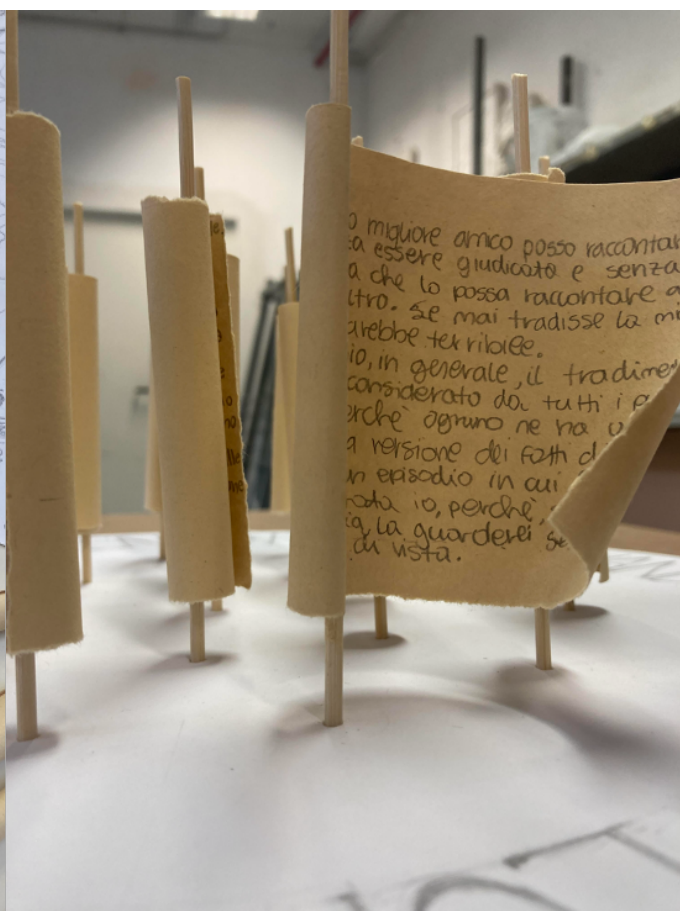 o migliore amico posso raccontar
a essere giudicato e senza
a che lo possa raccontare a
ltro. Se mai tradisse la mi
arebbe terribile.
io, in generale, il tradime
considerato da tutti i
erchè ognuno ne ha u
a versione dei fatti d
un episodio in cui
io, perchè,
la guarderei se
di vista.